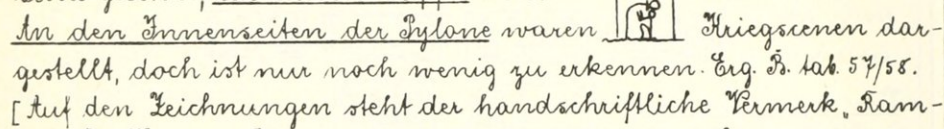 An den Innenseiten der Pylone waren Kriegscenen dar-
gestellt, doch ist nur noch wenig zu erkennen. Erg. B. tab. 57/58.
[Auf den Zeichnungen steht der handschriftliche Vermerk „Ram-